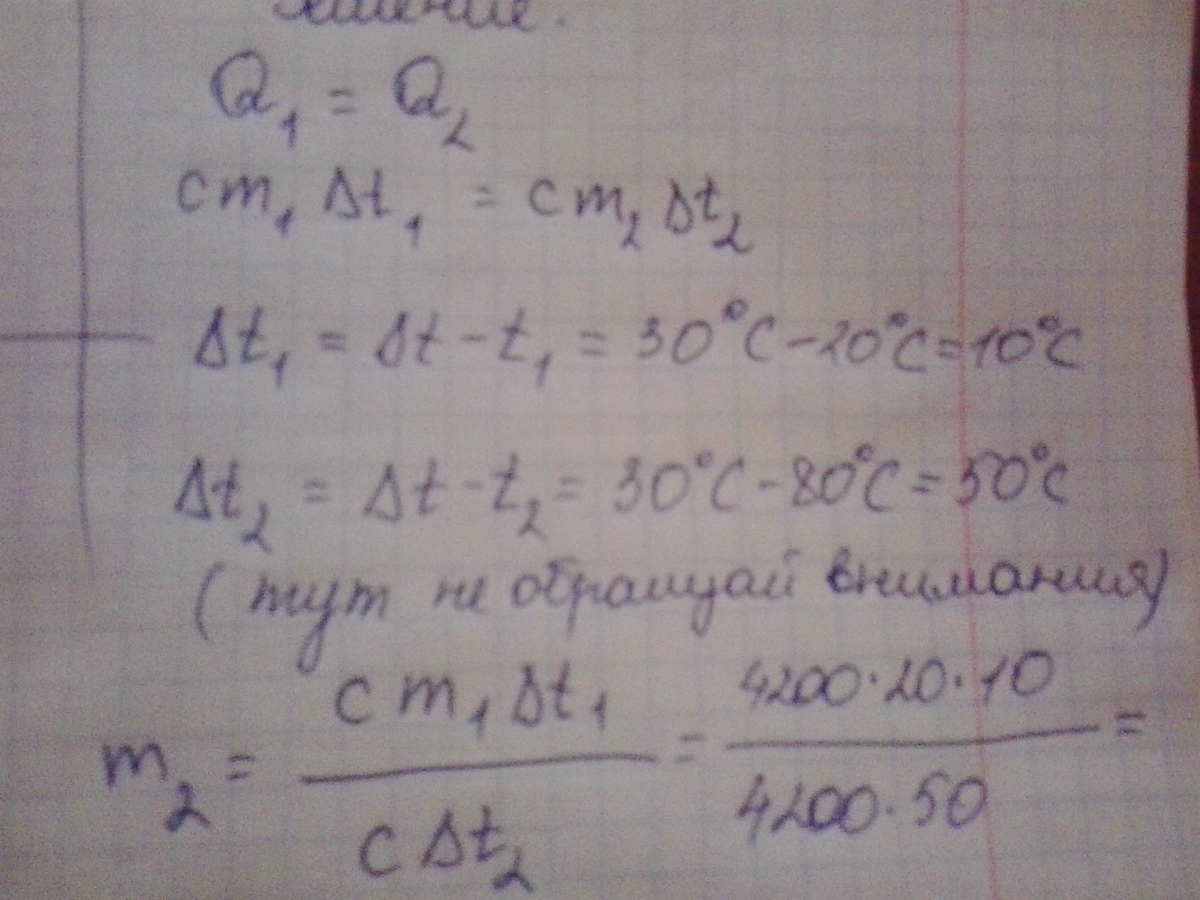 Решение.
Q₁ = Q₂
cm₁ Δt₁ = cm₂ Δt₂
Δt₁ = Δt - t₁ = 30°C - 20°C = 10°C
Δt₂ = Δt - t₂ = 30°C - 80°C = 50°C
(тут не обращай внимания)
m₂ = cm₁Δt₁ / cΔt₂ = 4200·20·10 / 4200·50 =